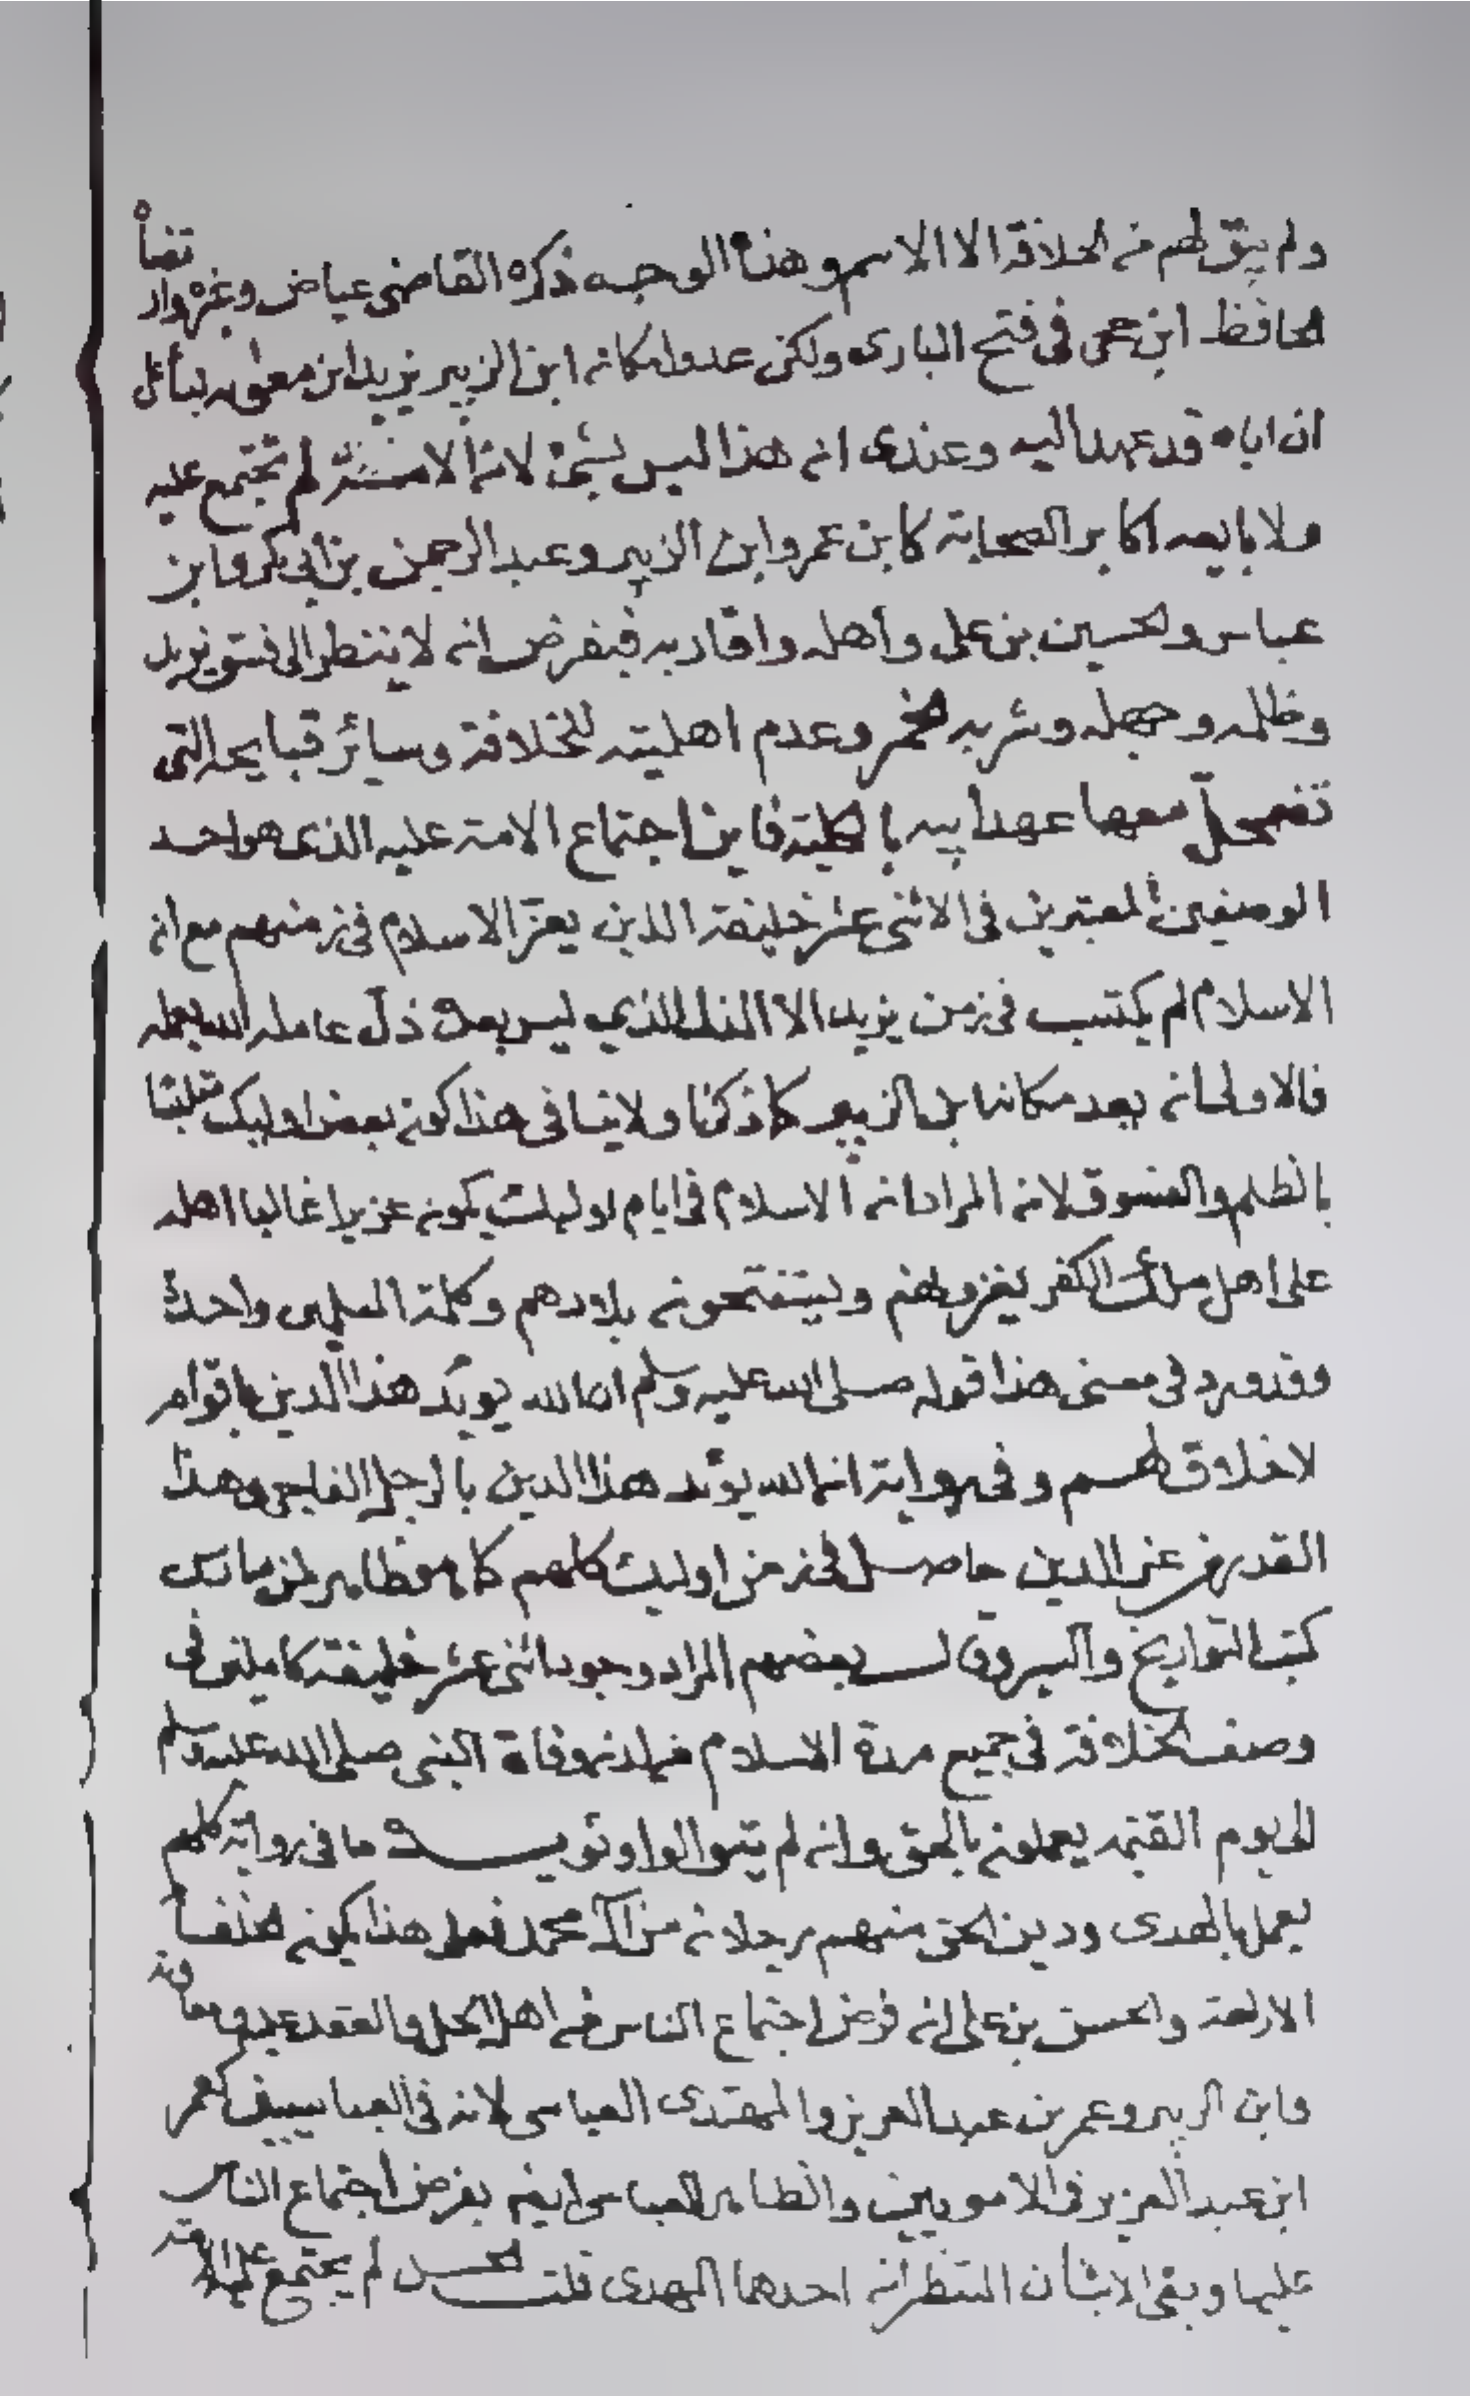 ولم يبق لهم من الخلافة الا الاسم وهذا الوجه ذكره القاضي عياض وغيره وارتضاه
الحافظ ابن حجر في فتح الباري ولكن عدوا مكان ابن الزبير يزيد ابن معوية بناء على
ان اباه قد عهدا اليه وعندي ان هذا ليس بشئ لان الامة لم تجتمع عليه
ولا بايعه اكابر الصحابة كابن عمر وابن الزبير وعبد الرحمن بن ابي بكر وابن
عباس والحسين بن علي وأهله واقاربه فبفرض انه لا ينظر الى فسق يزيد
وظلمه وجهله وشربه الخمر وعدم اهليته للخلافة وسائر قبايحه التي
تضمحل معها عهد أبيه بالكلية فاين اجتماع الامة عليه الذي هو احد
الوصفين المعتبرين في الاثنى عشر خليفة الذين يعز الاسلام في زمنهم مع ان
الاسلام لم يكتسب في زمن يزيد الا الذل الذي ليس بعده ذل عامله الله بعدله
فالاولى انه يعد مكانه ابن الزبير كما ذكرنا ولا ينافي هذا كون بعض اوليك متلبسا
بالظلم والفسوق لان المراد ان الاسلام في ايام اوليك يكون عزيزا غالبا اهله
على اهل ملل الكفر يغزونهم ويستفتحون بلادهم وكلمة المسلمين واحدة
وقد ورد في معنى هذا قوله صلى الله عليه وسلم ان الله يؤيد هذا الدين باقوام
لا خلاق لهم وفي رواية ان الله يؤيد هذا الدين بالرجل الفاجر وهذا
القدر من عز الدين حاصل في زمن اوليك كلهم كما هو ظاهر لمن مارس
كتب التواريخ والسير وقال بعضهم المراد وجود اثنى عشر خليفة كاملين في
وصف الخلافة في جميع مدة الاسلام من لدن وفاة النبي صلى الله عليه وسلم
الى يوم القيمة يعملون بالحق وان لم يتوالوا ويؤيده ما في رواية كلهم
يعمل بالهدى ودين الحق منهم رجلان من آل محمد فعلى هذا يكون الخلفاء
الاربعة والحسن بن علي لانه فرض اجتماع الناس من اهل الحل والعقد عليه ومعاوية
وابن الزبير وعمر بن عبد العزيز والمهتدي العباسي لانه في العباسيين كعمر
ابن عبد العزيز في الامويين والظاهر العباسي ايضا بفرض اجتماع الناس
عليهما وبقي الاثنان المنتظران احدهما المهدي قلت الحسن لم يجتمع عليه الامة